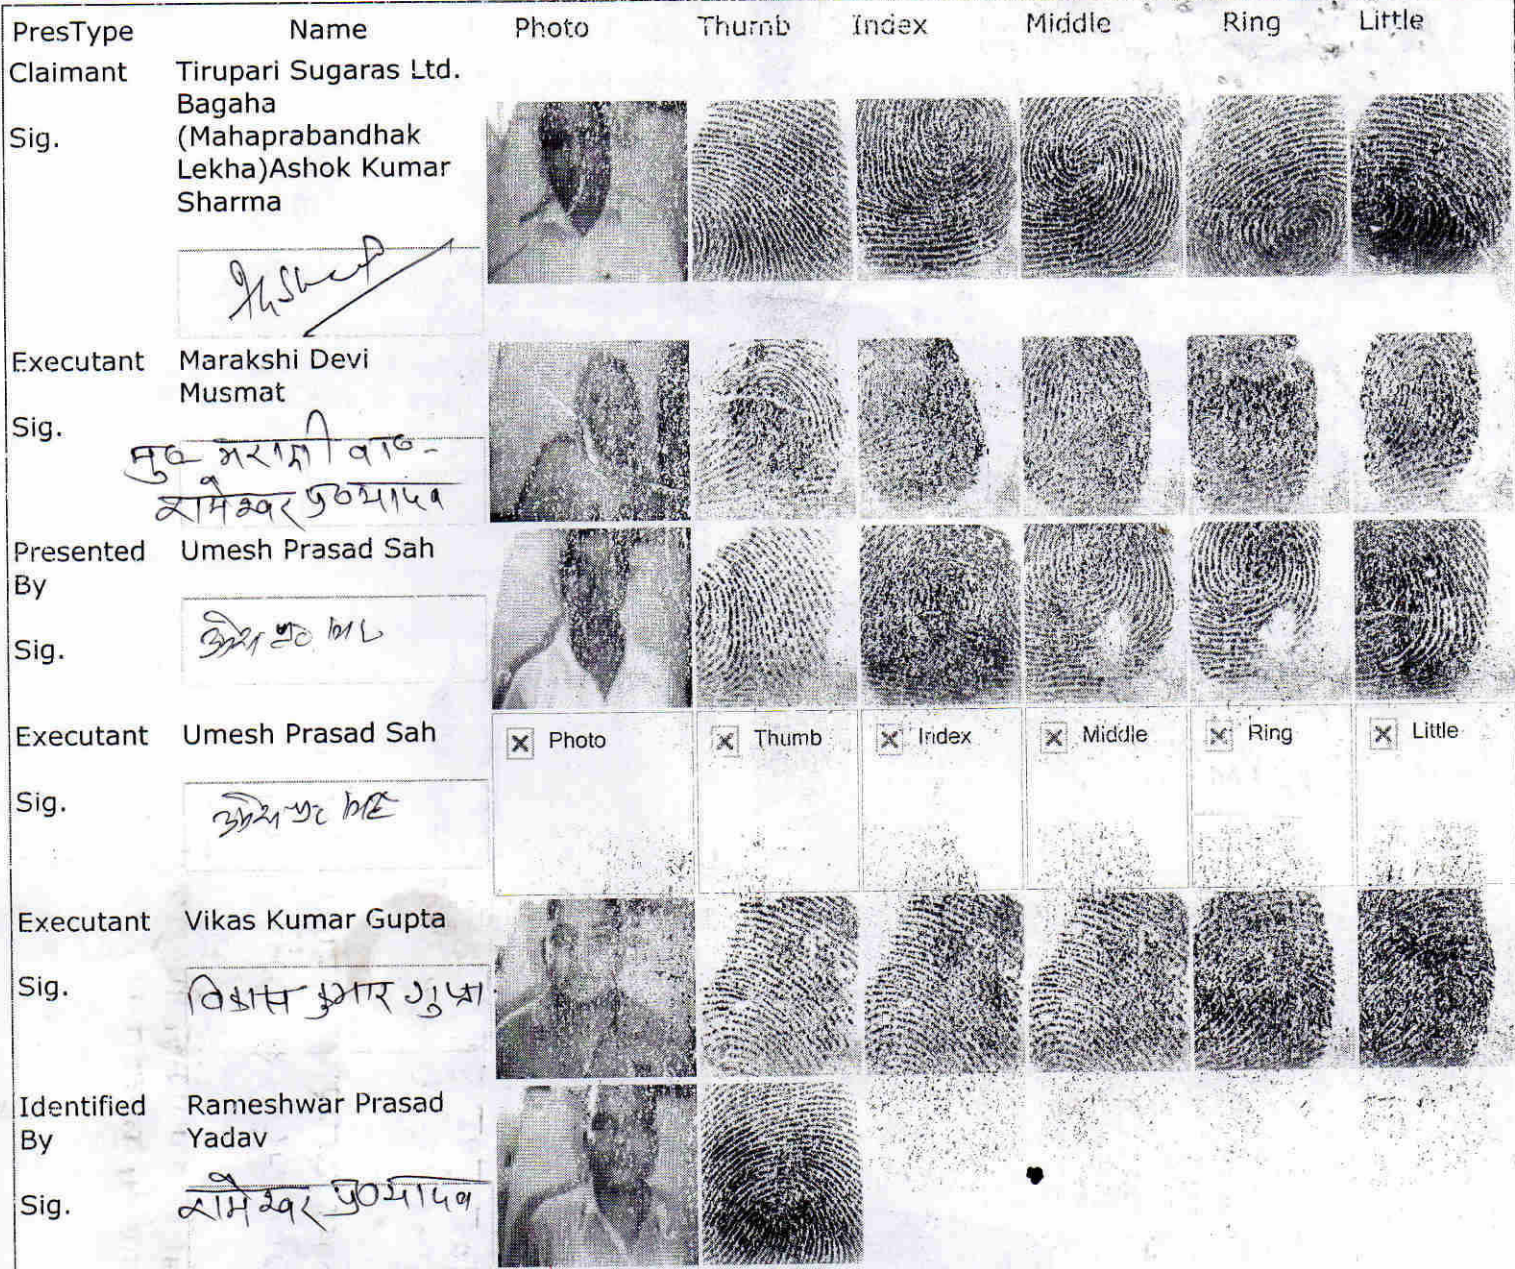 PresType Name Photo Thumb Index Middle Ring Little
Claimant Tirupari Sugaras Ltd.
Bagaha
Sig. (Mahaprabandhak
Lekha)Ashok Kumar
Sharma
Executant Marakshi Devi
Musmat
Sig.
रामेश्वर प्र० यादव
Presented Umesh Prasad Sah
By
Sig. उमेश प्र०
Executant Umesh Prasad Sah Photo Thumb Index Middle Ring Little
Sig. उमेश प्र०
Executant Vikas Kumar Gupta
Sig. विकास कुमार गुप्ता
Identified Rameshwar Prasad
By Yadav
Sig. रामेश्वर प्र० यादव